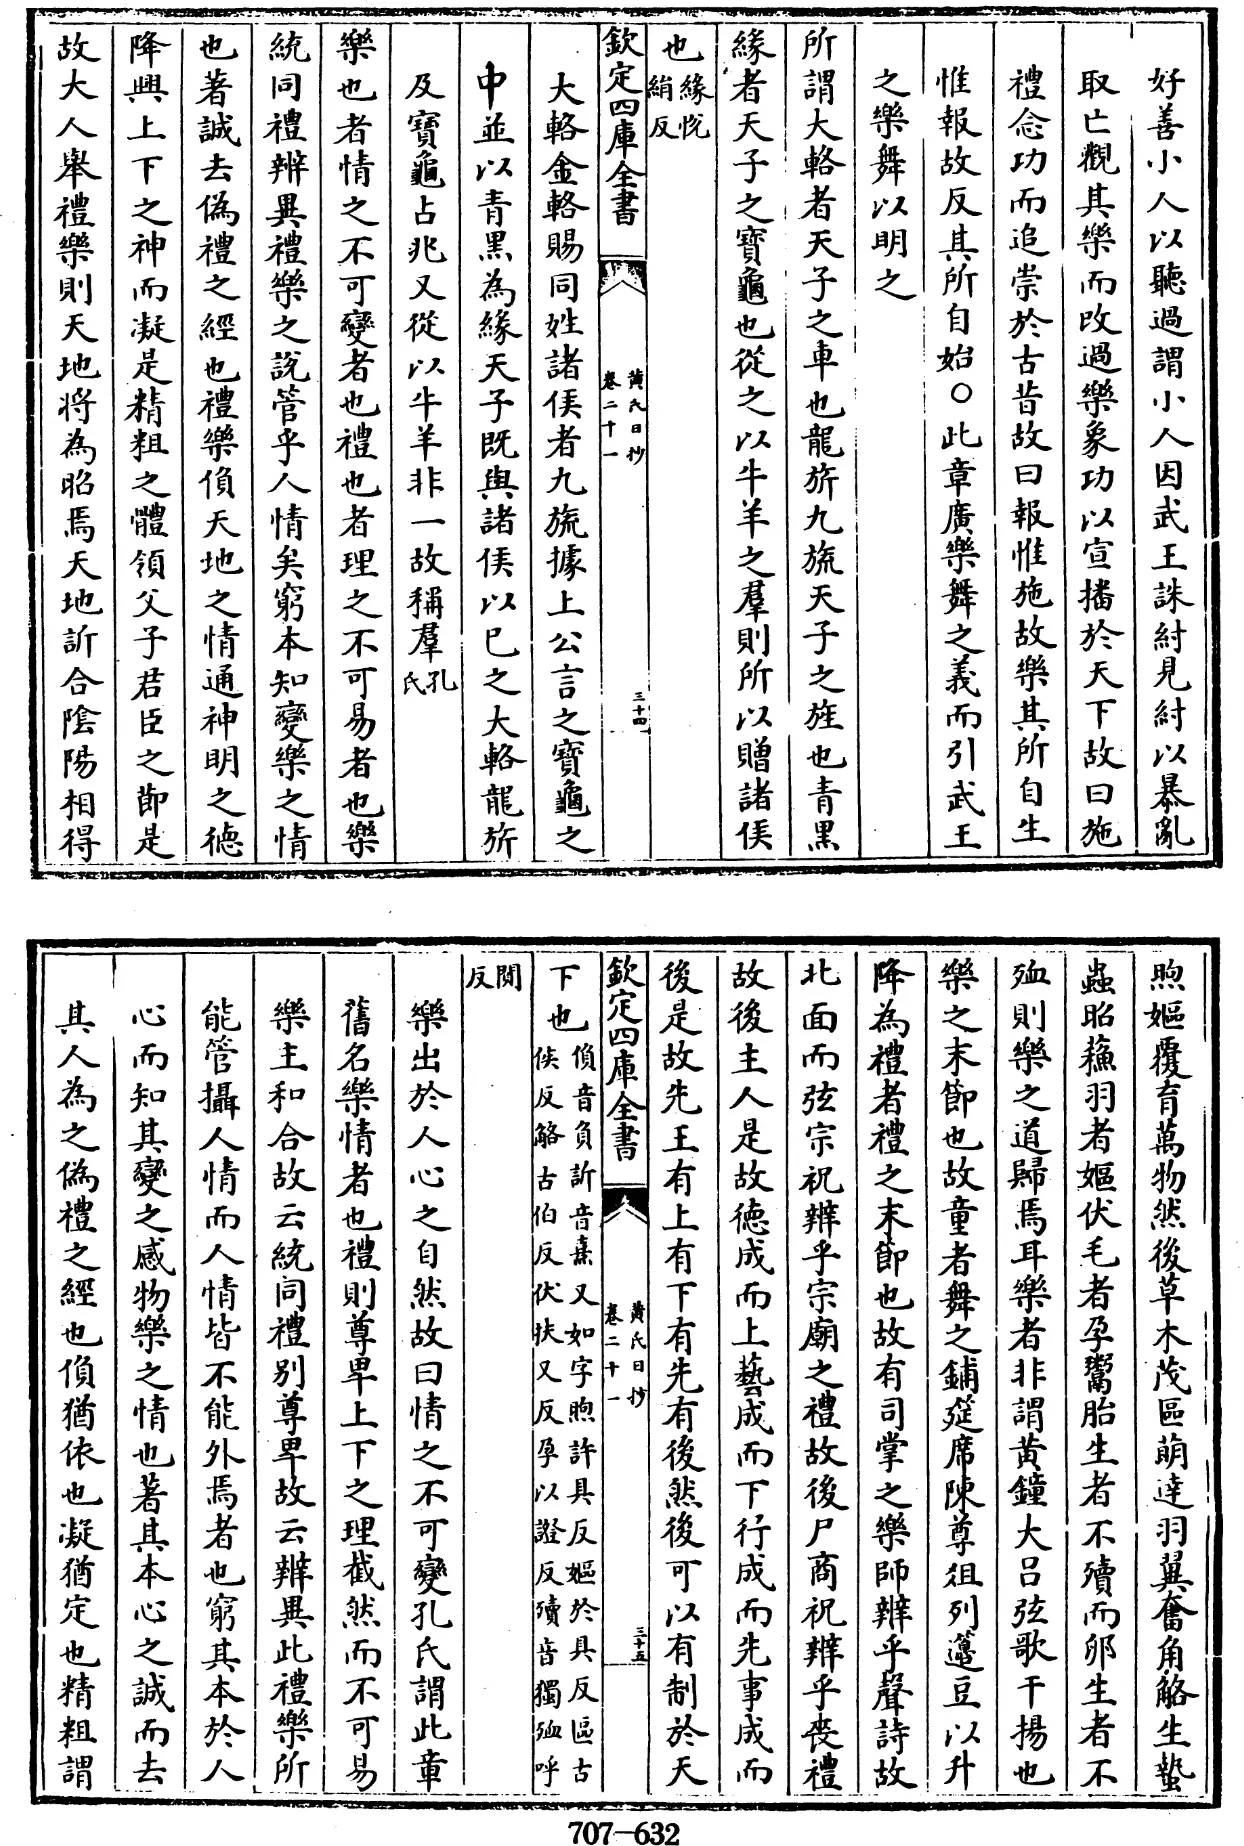 好善小人以聽過謂小人因武王誅紂見紂以暴亂
取亡觀其樂而改過樂象功以宣播於天下故曰施
禮念功而追崇於古昔故曰報惟施故樂其所自生
惟報故反其所自始○此章廣樂舞之義而引武王
之樂舞以明之
所謂大輅者天子之車也龍旂九旒天子之旌也青黑
緣者天子之寶龜也從之以牛羊之羣則所以贈諸侯
也緣悅
絹反
欽定四庫全書
黃氏日抄
卷二十一
三十四
大輅金輅賜同姓諸侯者九旒據上公言之寶龜之
中並以青黑為緣天子既與諸侯以己之大輅龍旂
及寶龜占兆又從以牛羊非一故稱羣孔
氏
樂也者情之不可變者也禮也者理之不可易者也樂
統同禮辨異禮樂之說管乎人情矣窮本知變樂之情
也著誠去偽禮之經也禮樂偩天地之情通神明之德
降興上下之神而凝是精粗之體領父子君臣之節是
故大人舉禮樂則天地將為昭焉天地訢合陰陽相得
煦嫗覆育萬物然後草木茂區萌達羽翼奮角觡生蟄
蟲昭蘓羽者嫗伏毛者孕鬻胎生者不殰而卵生者不
殈則樂之道歸焉耳樂者非謂黃鐘大呂弦歌干揚也
樂之末節也故童者舞之鋪筵席陳尊俎列籩豆以升
降為禮者禮之末節也故有司掌之樂師辨乎聲詩故
北面而弦宗祝辨乎宗廟之禮故後尸商祝辨乎喪禮
故後主人是故德成而上藝成而下行成而先事成而
後是故先王有上有下有先有後然後可以有制於天
欽定四庫全書
黃氏日抄
卷二十一
三十五
下也偩音負訢音熹又如字煦許具反嫗於具反區古
侯反觡古伯反伏扶又反孕以證反殰音獨殈呼
䦧
反
樂出於人心之自然故曰情之不可變孔氏謂此章
舊名樂情者也禮則尊卑上下之理截然而不可易
樂主和合故云統同禮別尊卑故云辨異此禮樂所
能管攝人情而人情皆不能外焉者也窮其本於人
心而知其變之感物樂之情也著其本心之誠而去
其人為之偽禮之經也偩猶依也凝猶定也精粗謂
707-632